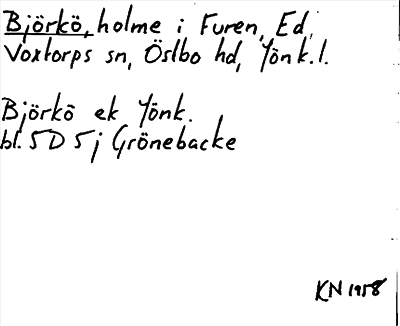 Björkö, holme i Furen, Ed,
Voxtorps sn, Östbo hd, Jönk.l.
Björkö ek Jönk.
bl. 5D 5j Grönebacke
KN 1958